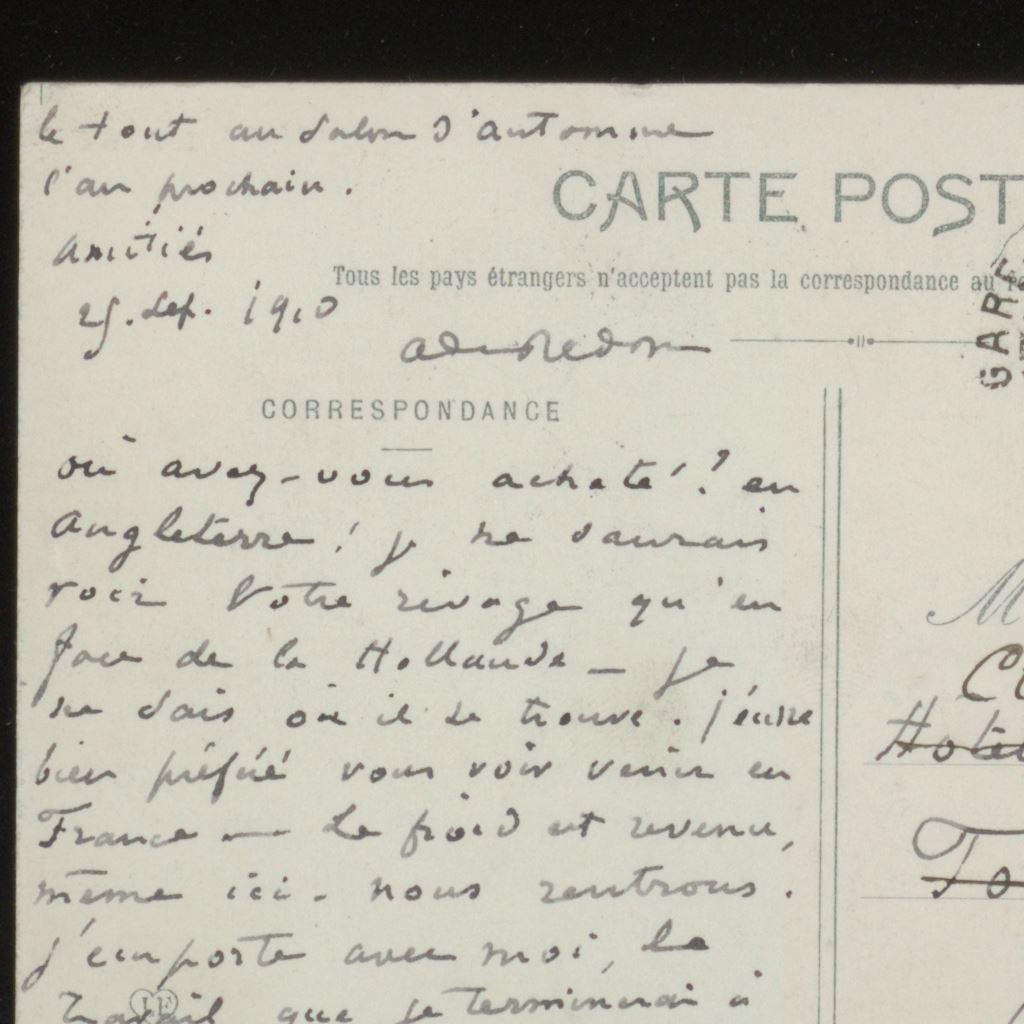 le tout au salon d'automne
l'an prochain.
amitiés
25. sep. 1910
CARTE POST
Tous les pays étrangers n'acceptent pas la correspondance au
GARE
CORRESPONDANCE
où avez-vous acheté? en
Angleterre! je ne saurais
voir votre rivage qu'en
face de la Hollande _ je
ne sais où il se trouve. j'eusse
bien préféré vous voir venir en
France — Le froid est revenu,
même ici. nous rentrons.
j'emporte avec moi, le
travail que je terminerai à
M
Hotel
To